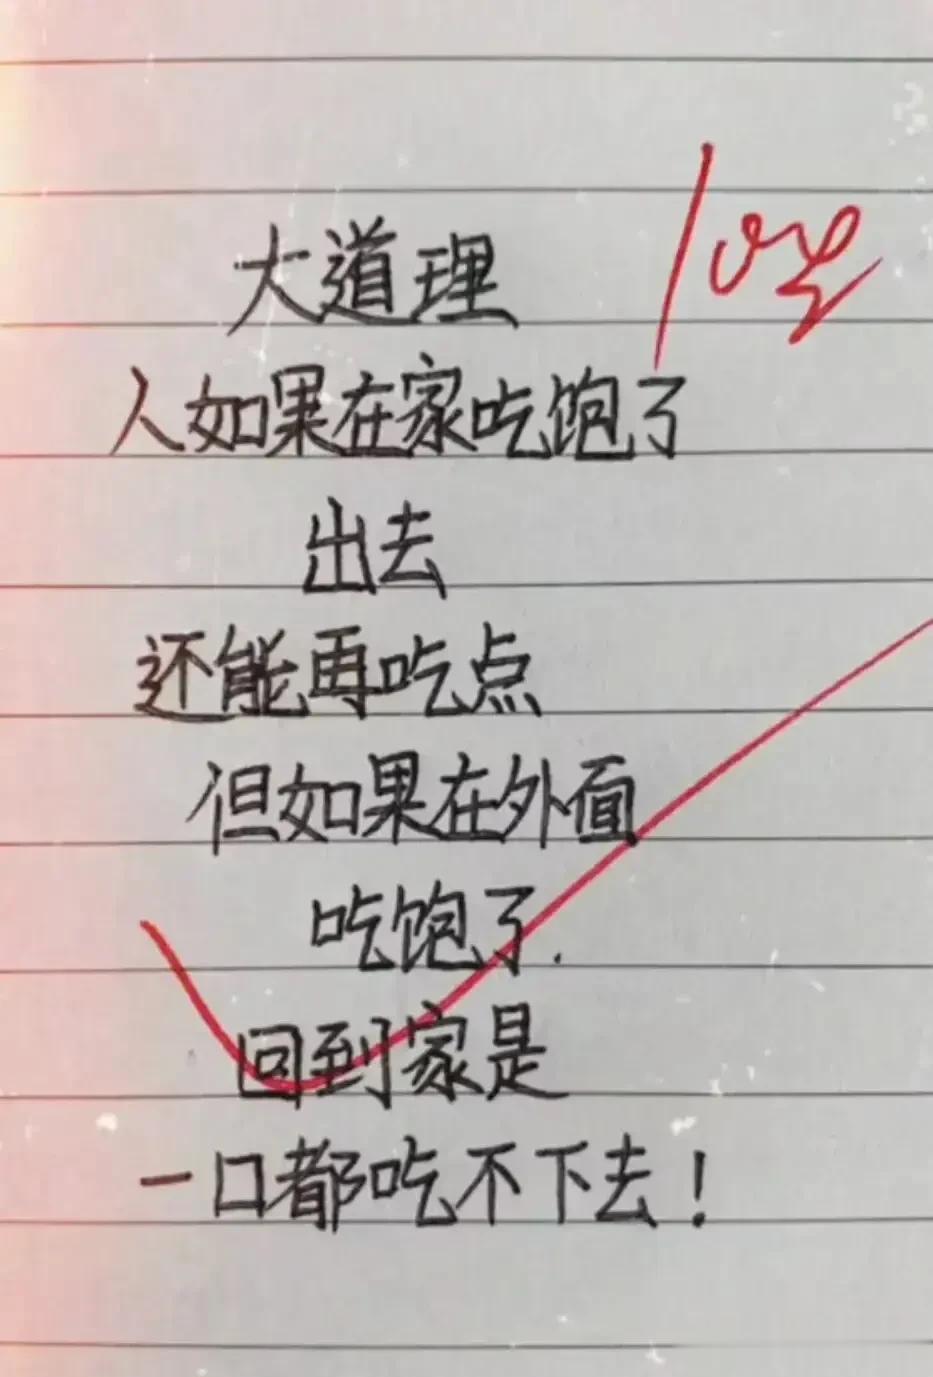 大道理
人如果在家吃饱了
出去
还能再吃点
但如果在外面
吃饱了.
回到家是
一口都吃不下去!